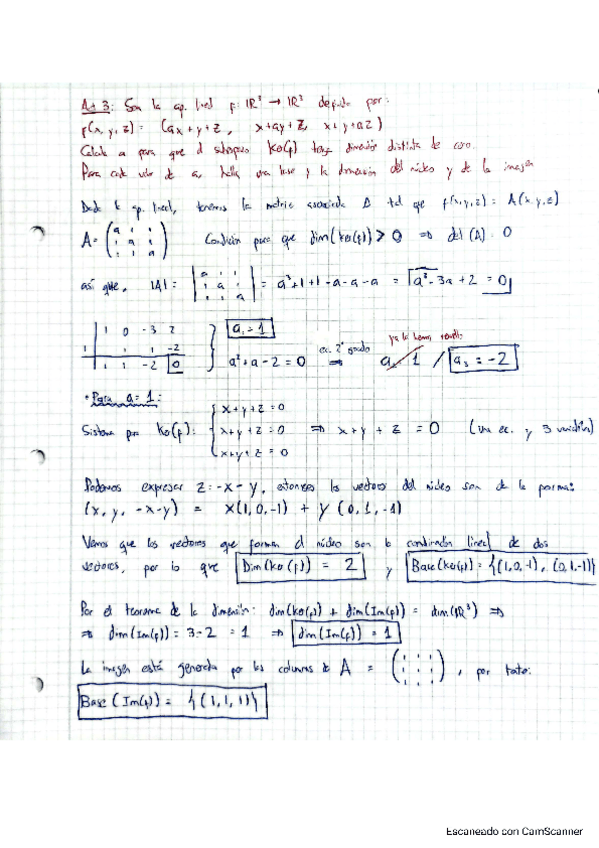 Act 3: Sea la ap. lineal f: IR³ → IR³ definida por:
f(x, y, z) = (ax+y+z, x+ay+z, x+y+az)
Calcula a para que el subespacio Ker(f) tenga dimensión distinta de cero.
Para cada valor de a, halla una base y la dimensión del núcleo y de la imagen
Dada la ap. lineal, tenemos la matriz asociada A tal que f(x,y,z) = A(x,y,z)
A = (a 1 1 / 1 a 1 / 1 1 a) Condición para que dim(Ker(f)) > 0 ⇒ det(A) = 0
así que, |A| = |a 1 1 / 1 a 1 / 1 1 a| = a³+1+1-a-a-a = a³-3a+2 = 0
1 0 -3 2
1 1 1 -2
1 1 -2 0
a₁ = 1
a²+a-2 = 0 ec. 2º grado ⇒ a₂ = 1 / a₃ = -2
ya la hemos
• Para a = 1:
Sistema para Ker(f): { x+y+z = 0
x+y+z = 0 ⇒ x+y+z = 0 (una ec. y 3 variables)
x+y+z = 0
Podemos expresar z = -x-y, entonces los vectores del núcleo son de la forma:
(x, y, -x-y) = x(1,0,-1) + y(0,1,-1)
Vemos que los vectores que forman el núcleo son la combinación lineal de dos
vectores, por lo que Dim(Ker(f)) = 2 y Base(Ker(f)) = {(1,0,-1), (0,1,-1)}
Por el teorema de la dimensión: dim(Ker(f)) + dim(Im(f)) = dim(IR³) ⇒
⇒ dim(Im(f)) = 3-2 = 1 ⇒ dim(Im(f)) = 1
La imagen está generada por las columnas de A = (1 1 1 / 1 1 1 / 1 1 1), por tanto:
Base(Im(f)) = {(1,1,1)}
Escaneado con CamScanner